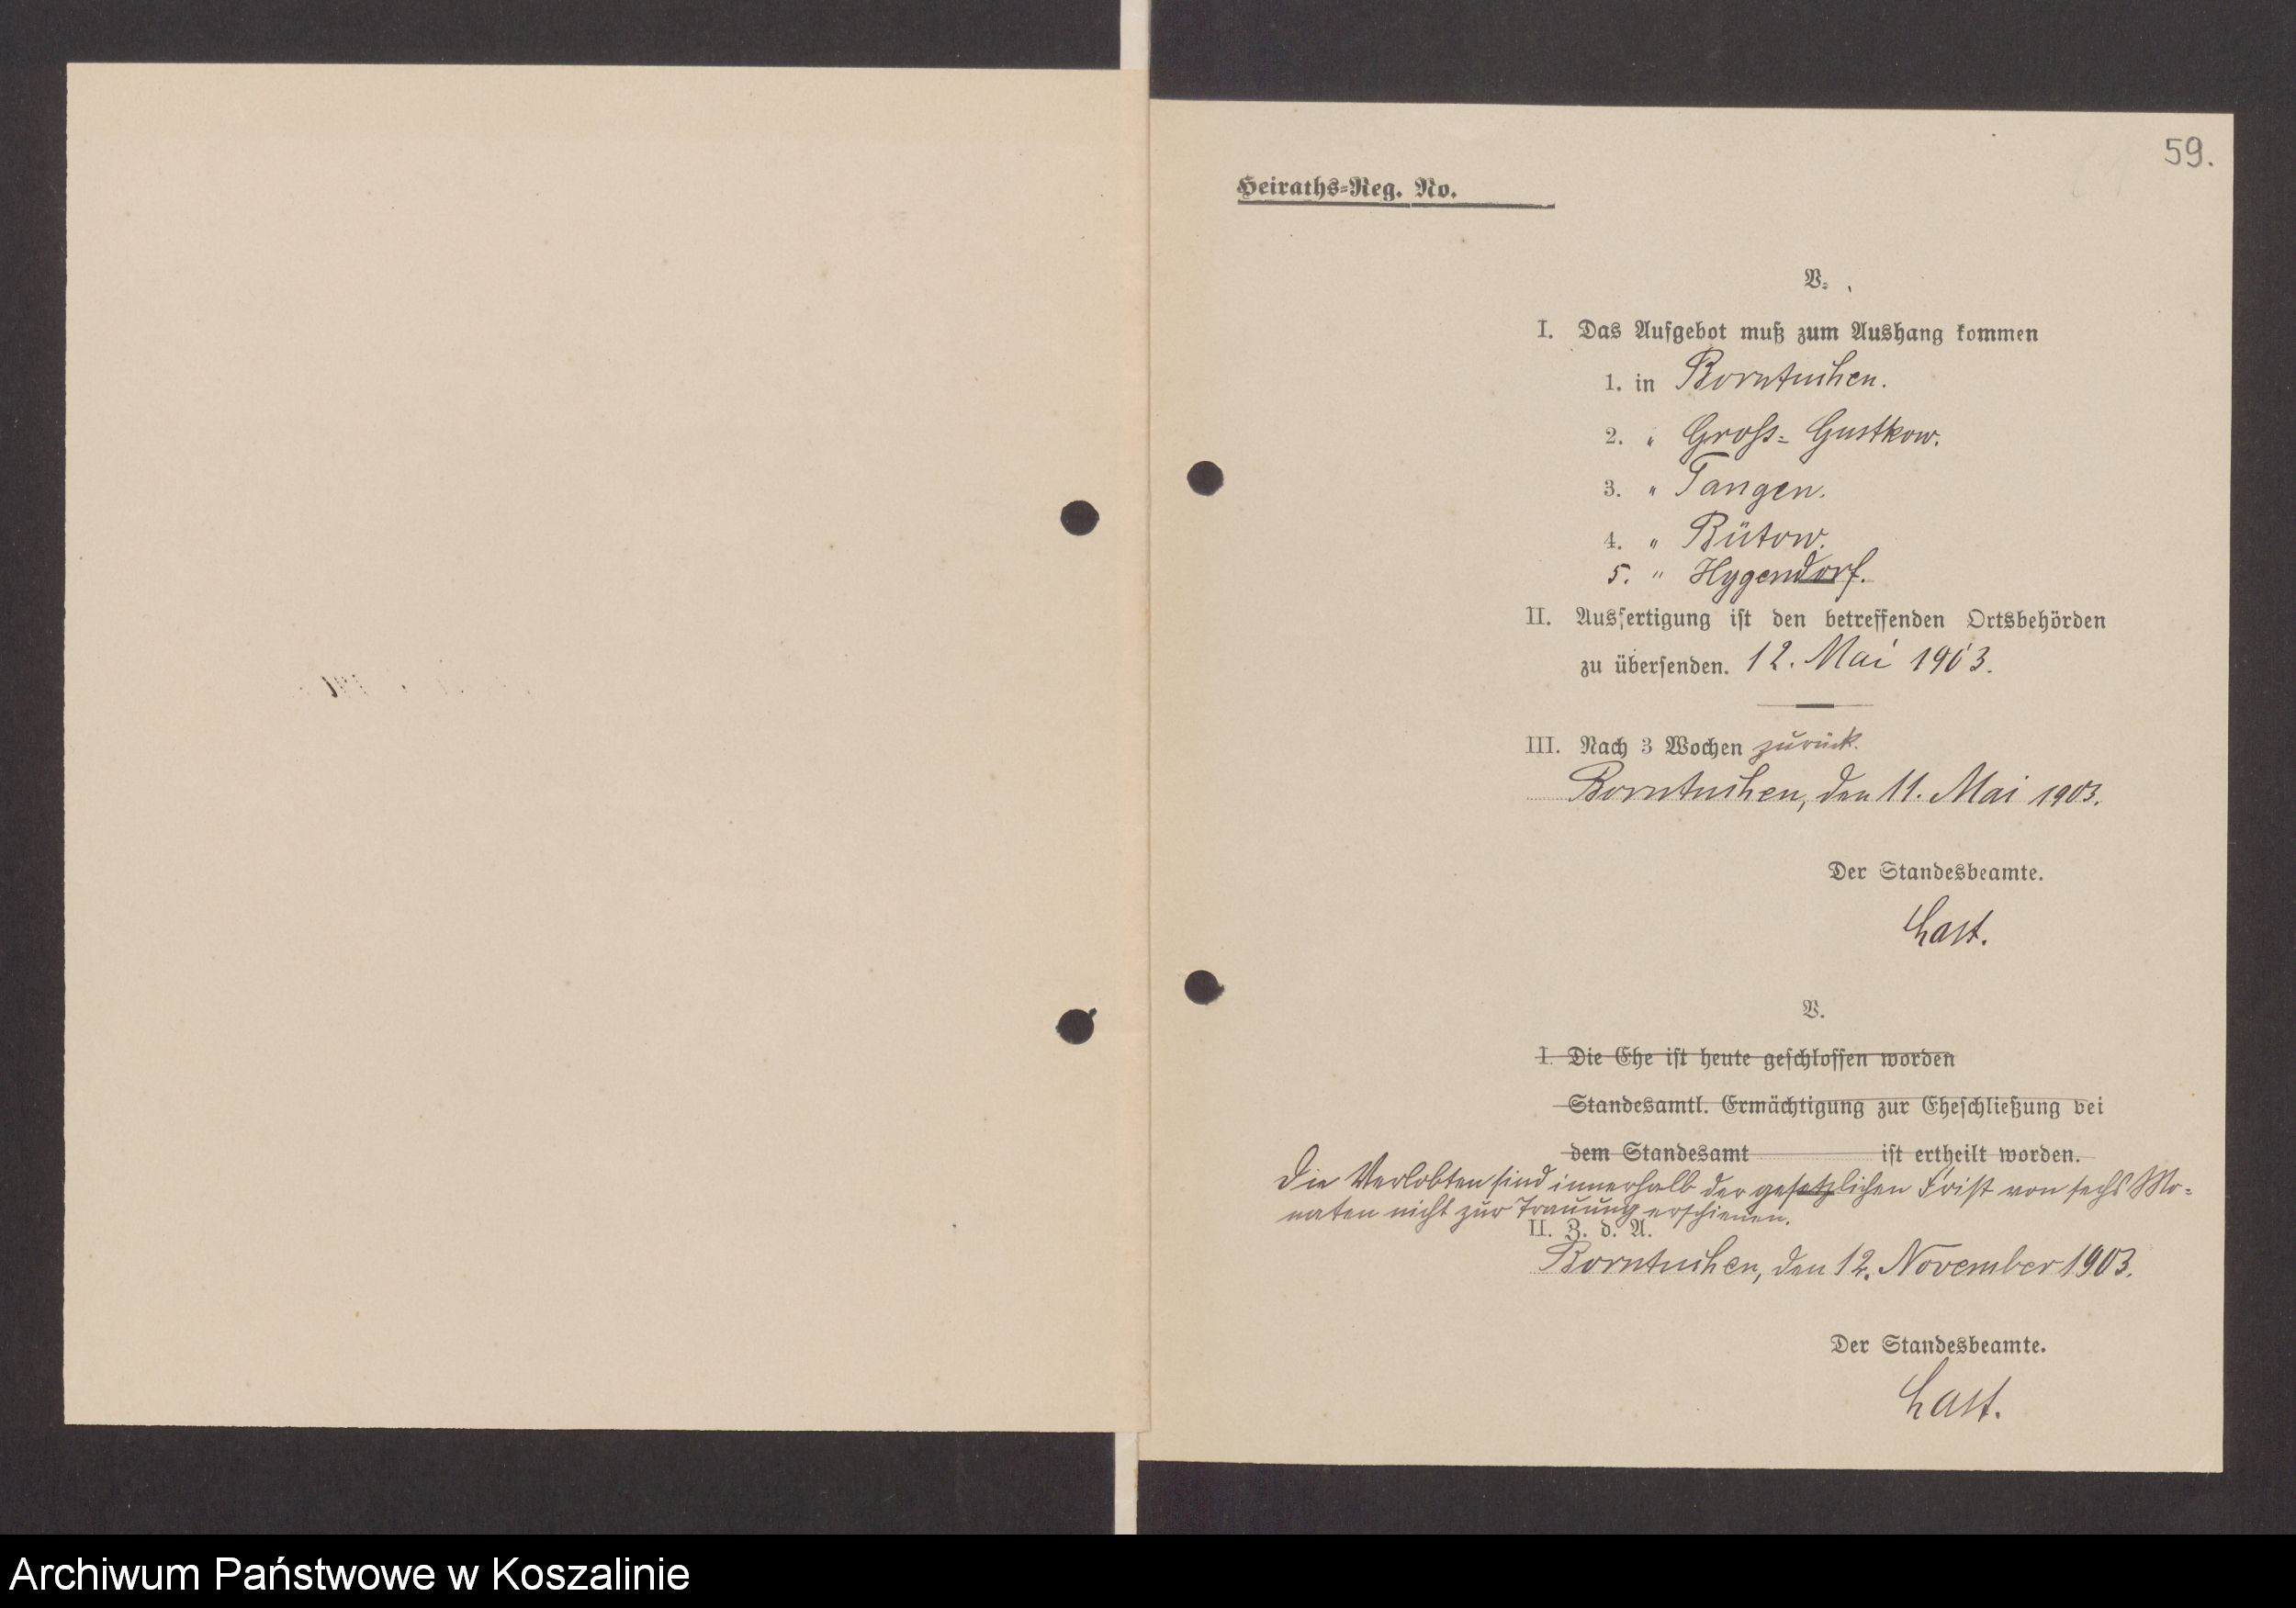 59.
Heiraths-Reg. No.
V.
I. Das Aufgebot muß zum Aushang kommen
1. in Borntuchen.
2. " Gross-Gustkow.
3. " Tangen.
4. " Bütow.
5. " Hygendorf.
II. Ausfertigung ist den betreffenden Ortsbehörden
zu übersenden. 12. Mai 1903.
III. Nach 3 Wochen zurück.
Borntuchen, den 11. Mai 1903.
Der Standesbeamte.
Last.
V.
I. Die Ehe ist heute geschlossen worden
Standesamtl. Ermächtigung zur Eheschließung bei
dem Standesamt ist ertheilt worden.
Die Verlobten sind innerhalb der gesetzlichen Frist von sechs Mo-
naten nicht zur Trauung erschienen.
II. Z. d. A.
Borntuchen, den 12. November 1903.
Der Standesbeamte.
Last.
Archiwum Państwowe w Koszalinie